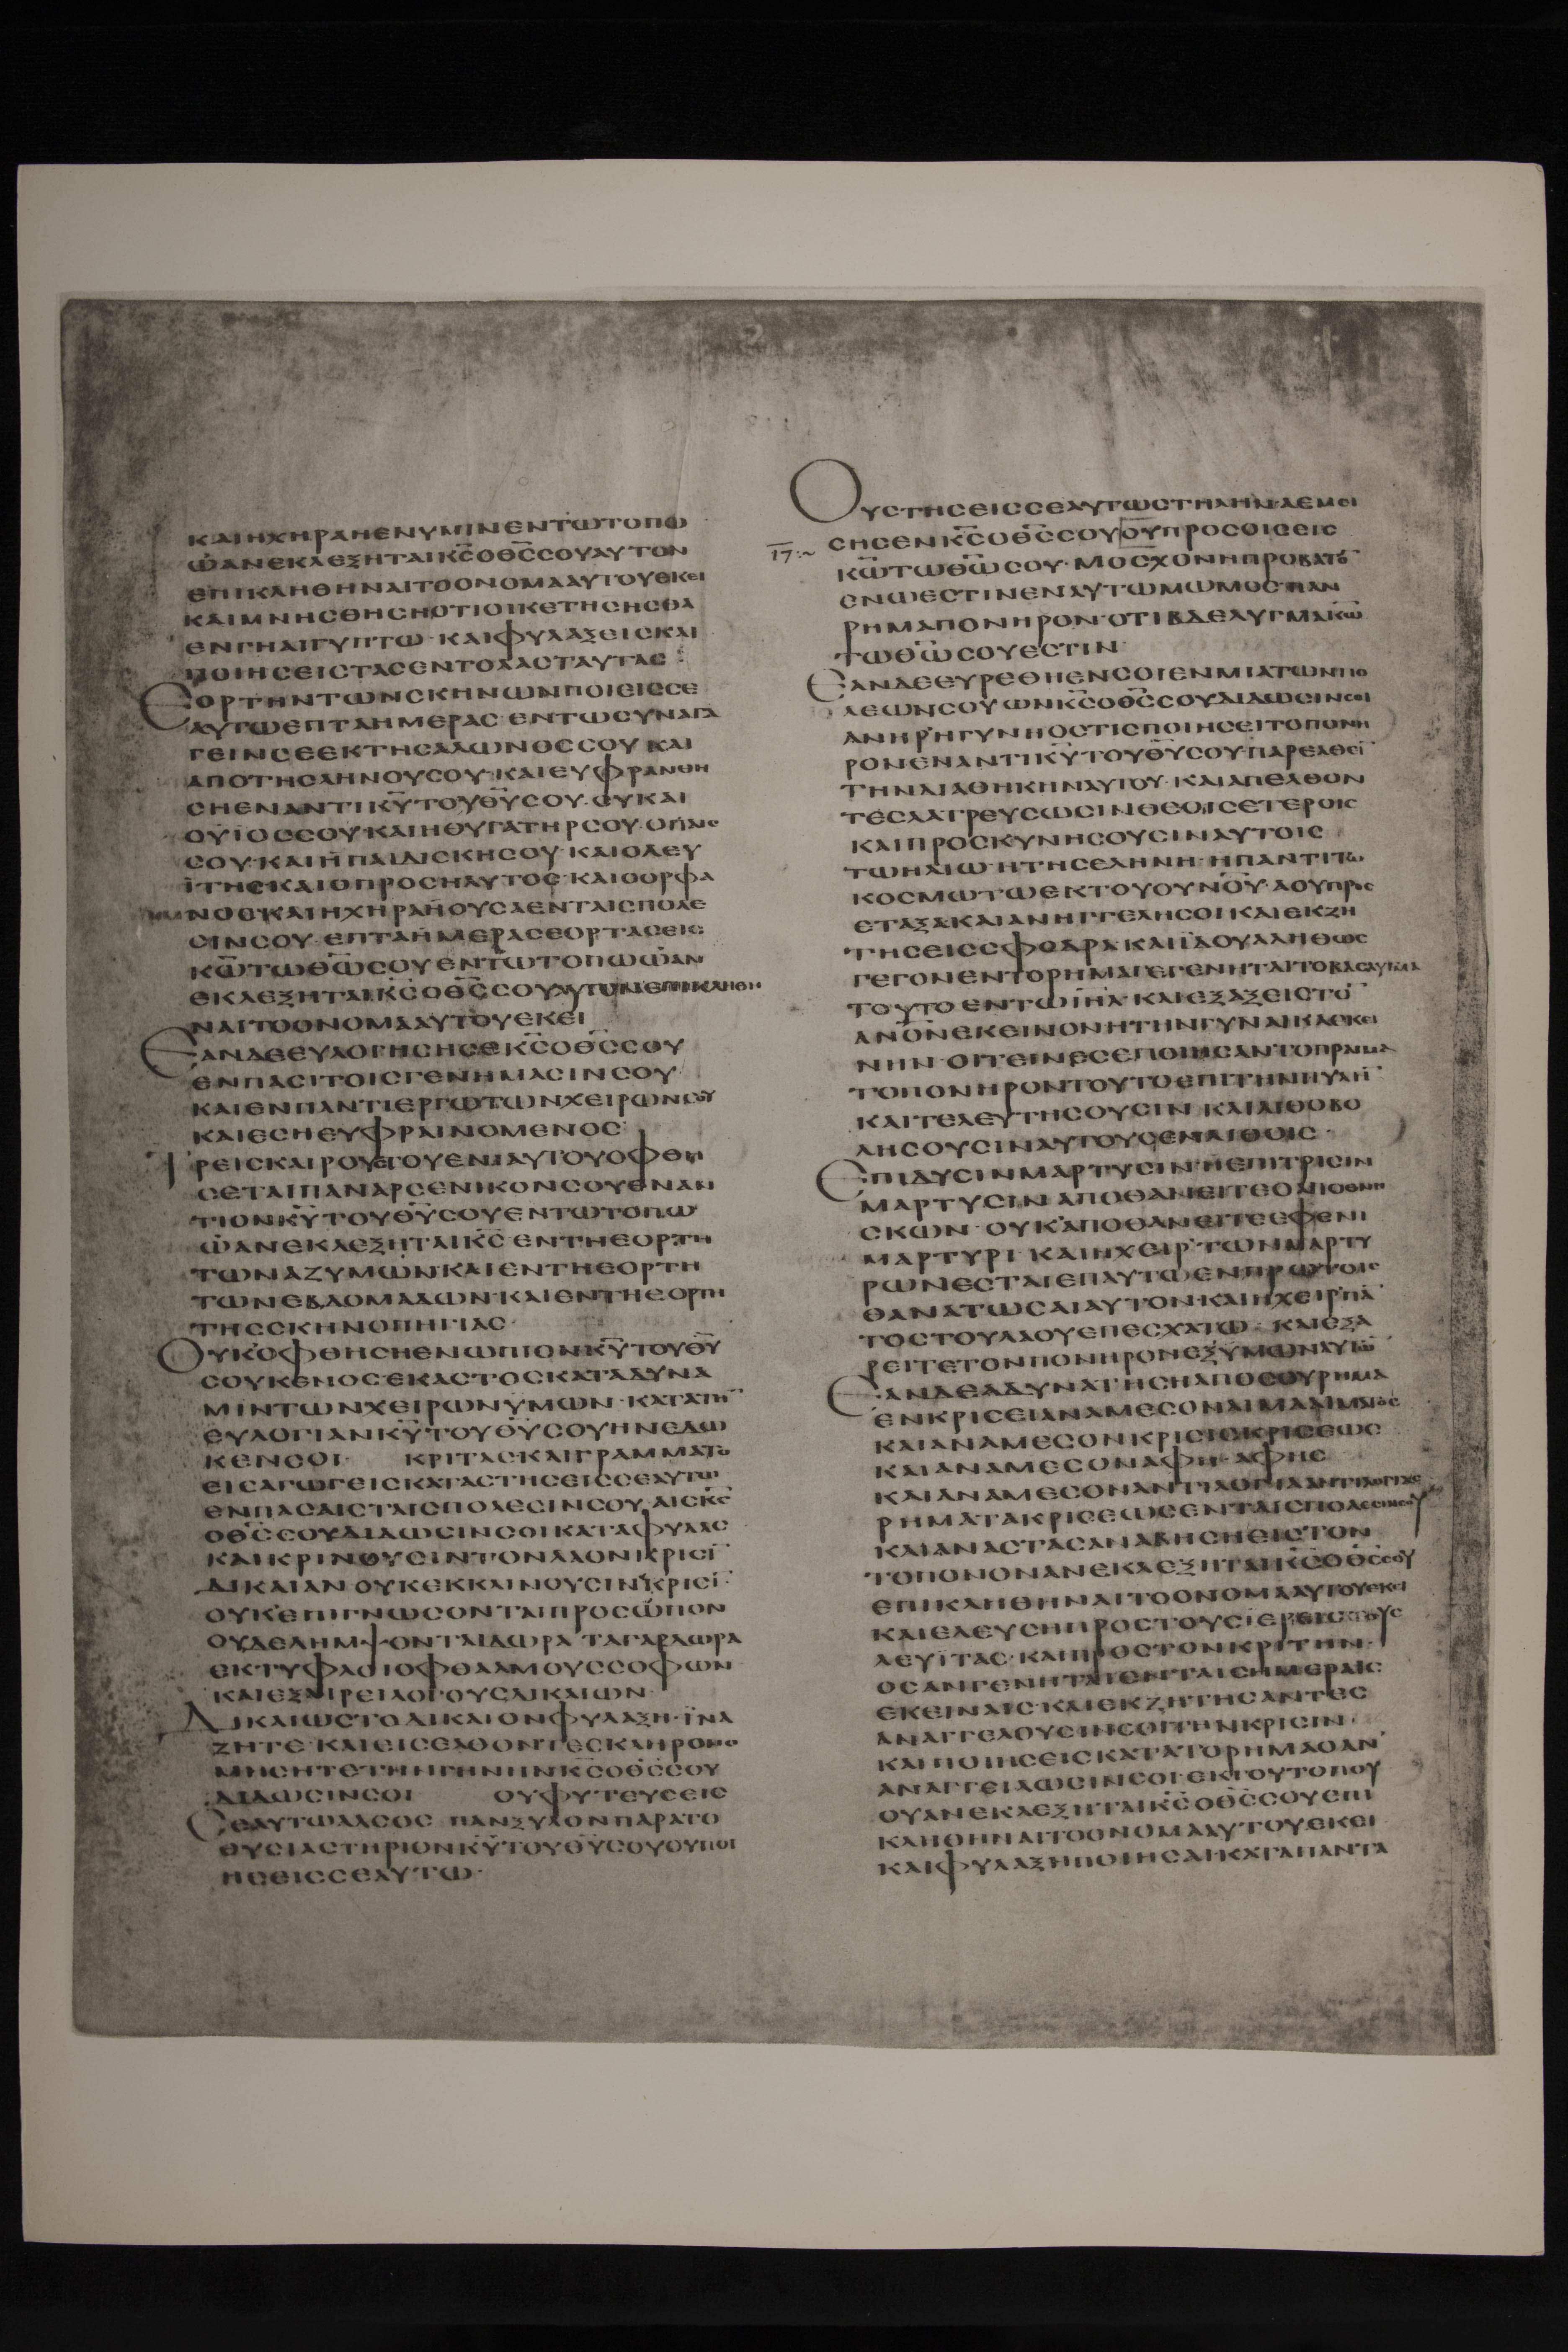 ΚΑΙΗΧΗΡΑΗΕΝΥΜΙΝΕΝΤΩΤΟΠΩ
ΩΑΝΕΚΛΕΞΗΤΑΙΚ̅Σ̅ΟΘ̅Σ̅ΣΟΥΑΥΤΟΝ
ΕΠΙΚΛΗΘΗΝΑΙΤΟΟΝΟΜΑΑΥΤΟΥΕΚΕΙ
ΚΑΙΜΝΗΣΘΗΣΗΟΤΙΟΙΚΕΤΗΣΗΣΘΑ
ΕΝΓΗΑΙΓΥΠΤΩ·ΚΑΙΦΥΛΑΞΕΙΣΚΑΙ
ΠΟΙΗΣΕΙΣΤΑΣΕΝΤΟΛΑΣΤΑΥΤΑΣ:
ΕΟΡΤΗΝΤΩΝΣΚΗΝΩΝΠΟΙΕΙΣΣΕ
ΑΥΤΩΕΠΤΑΗΜΕΡΑΣ·ΕΝΤΩΣΥΝΑΓΑ
ΓΕΙΝΣΕΕΚΤΗΣΑΛΩΝΟΣΣΟΥΚΑΙ
ΑΠΟΤΗΣΛΗΝΟΥΣΟΥ·ΚΑΙΕΥΦΡΑΝΘΗ
ΣΗΕΝΑΝΤΙΚ̅Υ̅ΤΟΥΘ̅Υ̅ΣΟΥ·ΣΥΚΑΙ
ΟΥΪΟΣΣΟΥ·ΚΑΙΗΘΥΓΑΤΗΡΣΟΥ·ΟΠΑΙΣ
ΣΟΥ·ΚΑΙΗΠΑΙΔΙΣΚΗΣΟΥ·ΚΑΙΟΛΕΥ
ΪΤΗΣΚΑΙΟΠΡΟΣΗΛΥΤΟΣ·ΚΑΙΟΟΡΦΑ
ΝΟΣΚΑΙΗΧΗΡΑΗΟΥΣΑΕΝΤΑΙΣΠΟΛΕ
ΣΙΝΣΟΥ·ΕΠΤΑΗΜΕΡΑΣΕΟΡΤΑΣΕΙΣ
Κ̅Ω̅ΤΩΘ̅Ω̅ΣΟΥΕΝΤΩΤΟΠΩΩΑΝ
ΕΚΛΕΞΗΤΑΙΚ̅Σ̅ΟΘ̅Σ̅ΣΟΥΑΥΤΟΝΕΠΙΚΛΗΘΗ
ΝΑΙΤΟΟΝΟΜΑΑΥΤΟΥΕΚΕΙ
ΕΑΝΔΕΕΥΛΟΓΗΣΗΣΕΚ̅Σ̅ΟΘ̅Σ̅ΣΟΥ
ΕΝΠΑΣΙΤΟΙΣΓΕΝΗΜΑΣΙΝΣΟΥ
ΚΑΙΕΝΠΑΝΤΙΕΡΓΩΤΩΝΧΕΙΡΩΝΣΟΥ
ΚΑΙΕΣΗΕΥΦΡΑΙΝΟΜΕΝΟΣ·
ΤΡΕΙΣΚΑΙΡΟΥΣΤΟΥΕΝΙΑΥΤΟΥΟΦΘΗ
ΣΕΤΑΙΠΑΝΑΡΣΕΝΙΚΟΝΣΟΥΕΝΑΝ
ΤΙΟΝΚ̅Υ̅ΤΟΥΘ̅Υ̅ΣΟΥΕΝΤΩΤΟΠΩ
ΩΑΝΕΚΛΕΞΗΤΑΙΚ̅Σ̅ΕΝΤΗΕΟΡΤΗ
ΤΩΝΑΖΥΜΩΝ·ΚΑΙΕΝΤΗΕΟΡΤΗ
ΤΩΝΕΒΔΟΜΑΔΩΝ·ΚΑΙΕΝΤΗΕΟΡΤΗ
ΤΗΣΣΚΗΝΟΠΗΓΙΑΣ·
ΟΥΚΟΦΘΗΣΗΕΝΩΠΙΟΝΚ̅Υ̅ΤΟΥΘ̅Υ̅
ΣΟΥΚΕΝΟΣ·ΕΚΑΣΤΟΣΚΑΤΑΔΥΝΑ
ΜΙΝΤΩΝΧΕΙΡΩΝΥΜΩΝ·ΚΑΤΑΤΗ̅
ΕΥΛΟΓΙΑΝΚ̅Υ̅ΤΟΥΘ̅Υ̅ΣΟΥΗΝΕΔΩ
ΚΕΝΣΟΙ· ΚΡΙΤΑΣ·ΚΑΙΓΡΑΜΜΑΤΟ
ΕΙΣΑΓΩΓΕΙΣΚΑΤΑΣΤΗΣΕΙΣΣΕΑΥΤΩ
ΕΝΠΑΣΑΙΣΤΑΙΣΠΟΛΕΣΙΝΣΟΥ·ΑΙΣΚ̅Σ̅
ΟΘ̅Σ̅ΣΟΥΔΙΔΩΣΙΝΣΟΙΚΑΤΑΦΥΛΑΣ
ΚΑΙΚΡΙΝΟΥΣΙΝΤΟΝΛΑΟΝΚΡΙΣΙ̅
ΔΙΚΑΙΑΝ·ΟΥΚΕΚΚΛΙΝΟΥΣΙΝΚΡΙΣΙ̅·
ΟΥΚΕΠΙΓΝΩΣΟΝΤΑΙΠΡΟΣΩΠΟΝ
ΟΥΔΕΛΗΜΨΟΝΤΑΙΔΩΡΑ·ΤΑΓΑΡΔΩΡΑ
ΕΚΤΥΦΛΟΙΟΦΘΑΛΜΟΥΣΣΟΦΩΝ
ΚΑΙΕΞΑΙΡΕΙΛΟΓΟΥΣΔΙΚΑΙΩΝ·
ΔΙΚΑΙΩΣΤΟΔΙΚΑΙΟΝΦΥΛΑΞΗ·ΪΝΑ
ΖΗΤΕ·ΚΑΙΕΙΣΕΛΘΟΝΤΕΣΚΛΗΡΟΝΟ
ΜΗΣΗΤΕΤΗΝΓΗΝΗΝΚ̅Σ̅ΟΘ̅Σ̅ΣΟΥ
ΔΙΔΩΣΙΝΣΟΙ ΟΥΦΥΤΕΥΣΕΙΣ
ΣΕΑΥΤΩΑΛΣΟΣ·ΠΑΝΞΥΛΟΝΠΑΡΑΤΟ
ΘΥΣΙΑΣΤΗΡΙΟΝΚ̅Υ̅ΤΟΥΘ̅Υ̅ΣΟΥΟΥΠΟΙ
ΗΣΕΙΣΣΕΑΥΤΩ·
ΟΥΣΤΗΣΕΙΣΣΕΑΥΤΩΣΤΗΛΗΝ·ΑΕΜΕΙ
ΣΗΣΕΝΚ̅Σ̅ΟΘ̅Σ̅ΣΟΥΟΥΠΡΟΣΘΙΣΕΙΣ
17:~
Κ̅Ω̅ΤΩΘ̅Ω̅ΣΟΥ·ΜΟΣΧΟΝΗΠΡΟΒΑΤΟ̅
ΕΝΩΕΣΤΙΝΕΝΑΥΤΩΜΩΜΟΣ·ΠΑΝ
ΡΗΜΑΠΟΝΗΡΟΝ·ΟΤΙΒΔΕΛΥΓΜΑΚ̅Ω̅
ΤΩΘ̅Ω̅ΣΟΥΕΣΤΙΝ·
ΕΑΝΔΕΕΥΡΕΘΗΕΝΣΟΙΕΝΜΙΑΤΩΝΠΟ
ΛΕΩΝΣΟΥΩΝΚ̅Σ̅ΟΘ̅Σ̅ΣΟΥΔΙΔΩΣΙΝΣΟΙ
ΑΝΗΡΗΓΥΝΗΟΣΤΙΣΠΟΙΗΣΕΙΤΟΠΟΝΗ
ΡΟΝΕΝΑΝΤΙΚ̅Υ̅ΤΟΥΘ̅Υ̅ΣΟΥ·ΠΑΡΕΛΘΕΙ̅
ΤΗΝΔΙΑΘΗΚΗΝΑΥΤΟΥ·ΚΑΙΑΠΕΛΘΟΝ
ΤΕΣΛΑΤΡΕΥΣΩΣΙΝΘΕΟΙΣΕΤΕΡΟΙΣ
ΚΑΙΠΡΟΣΚΥΝΗΣΟΥΣΙΝΑΥΤΟΙΣ
ΤΩΗΛΙΩ·ΗΤΗΣΕΛΗΝΗ·ΗΠΑΝΤΙΤΩ
ΚΟΣΜΩΤΩΕΚΤΟΥΟΥΝΟ̅Υ̅·ΑΟΥΠΡΟΣ
ΕΤΑΞΑΚΑΙΑΝΗΓΓΕΛΗΣΟΙΚΑΙΕΚΖΗ
ΤΗΣΕΙΣΣΦΟΔΡΑΚΑΙΪΔΟΥΑΛΗΘΩΣ
ΓΕΓΟΝΕΝΤΟΡΗΜΑΓΕΓΕΝΗΤΑΙΤΟΒΔΕΛΥΓΜΑ
ΤΟΥΤΟΕΝΤΩΙ̅Η̅Λ̅·ΚΑΙΕΞΑΞΕΙΣΤΟ̅
ΑΝΟ̅Ν̅ΕΚΕΙΝΟΝΗΤΗΝΓΥΝΑΙΚΑΕΚΕΙ
ΝΗΝ·ΟΙΤΕΙΝΕΣΕΠΟΙΗΣΑΝΤΟΠΡΑΓΜΑ
ΤΟΠΟΝΗΡΟΝΤΟΥΤΟΕΠΙΤΗΝΠΥΛΗ̅
ΚΑΙΤΕΛΕΥΤΗΣΟΥΣΙΝ·ΚΑΙΛΙΘΟΒΟ
ΛΗΣΟΥΣΙΝΑΥΤΟΥΣΕΝΛΙΘΟΙΣ·
ΕΠΙΔΥΣΙΝΜΑΡΤΥΣΙΝ·ΗΕΠΙΤΡΙΣΙΝ
ΜΑΡΤΥΣΙΝΑΠΟΘΑΝΕΙΤΕΟΑΠΟΘΝΗ
ΣΚΩΝ·ΟΥΚΑΠΟΘΑΝΕΙΤΕΕΦΕΝΙ
ΜΑΡΤΥΡΙ·ΚΑΙΗΧΕΙΡΤΩΝΜΑΡΤΥ
ΡΩΝΕΣΤΑΙΕΠΑΥΤΩΕΝΠΡΩΤΟΙΣ
ΘΑΝΑΤΩΣΑΙΑΥΤΟΝ·ΚΑΙΗΧΕΙΡΠΑ̅
ΤΟΣΤΟΥΛΑΟΥΕΠΕΣΧΑΤΩ·ΚΑΙΕΞΑ
ΡΕΙΤΕΤΟΝΠΟΝΗΡΟΝΕΞΥΜΩΝΑΥΤΩ̅
ΕΑΝΔΕΑΔΥΝΑΤΗΣΗΑΠΟΣΟΥΡΗΜΑ
ΕΝΚΡΙΣΕΙΑΝΑΜΕΣΟΝΑΙΜΑΑΙΜΑΤΟΣ
ΚΑΙΑΝΑΜΕΣΟΝΚΡΙΣΙΣΚΡΙΣΕΩΣ
ΚΑΙΑΝΑΜΕΣΟΝΑΦΗ·ΑΦΗΣ
ΚΑΙΑΝΑΜΕΣΟΝΑΝΤΙΛΟΓΙΑΑΝΤΙΛΟΓΙΑΣ
ΡΗΜΑΤΑΚΡΙΣΕΩΣΕΝΤΑΙΣΠΟΛΕΣΙΝΣΟΥ
ΚΑΙΑΝΑΣΤΑΣΑΝΑΒΗΣΗΕΙΣΤΟΝ
ΤΟΠΟΝΟΝΑΝΕΚΛΕΞΗΤΑΙΚ̅Σ̅ΟΘ̅Σ̅ΣΟΥ
ΕΠΙΚΛΗΘΗΝΑΙΤΟΟΝΟΜΑΑΥΤΟΥΕΚΕΙ
ΚΑΙΕΛΕΥΣΗΠΡΟΣΤΟΥΣΪΕΡΕΙΣΤΟΥΣ
ΛΕΥΪΤΑΣ·ΚΑΙΠΡΟΣΤΟΝΚΡΙΤΗΝ·
ΟΣΑΝΓΕΝΗΤΑΙΕΝΤΑΙΣΗΜΕΡΑΙΣ
ΕΚΕΙΝΑΙΣ·ΚΑΙΕΚΖΗΤΗΣΑΝΤΕΣ
ΑΝΑΓΓΕΛΟΥΣΙΝΣΟΙΤΗΝΚΡΙΣΙΝ·
ΚΑΙΠΟΙΗΣΕΙΣΚΑΤΑΤΟΡΗΜΑΟΑΝ
ΑΝΑΓΓΕΙΛΩΣΙΝΣΟΙ·ΕΚΤΟΥΤΟΠΟΥ
ΟΥΑΝΕΚΛΕΞΗΤΑΙΚ̅Σ̅ΟΘ̅Σ̅ΣΟΥΕΠΙ
ΚΛΗΘΗΝΑΙΤΟΟΝΟΜΑΑΥΤΟΥΕΚΕΙ
ΚΑΙΦΥΛΑΞΗΠΟΙΗΣΑΙ·ΚΑΤΑΠΑΝΤΑ